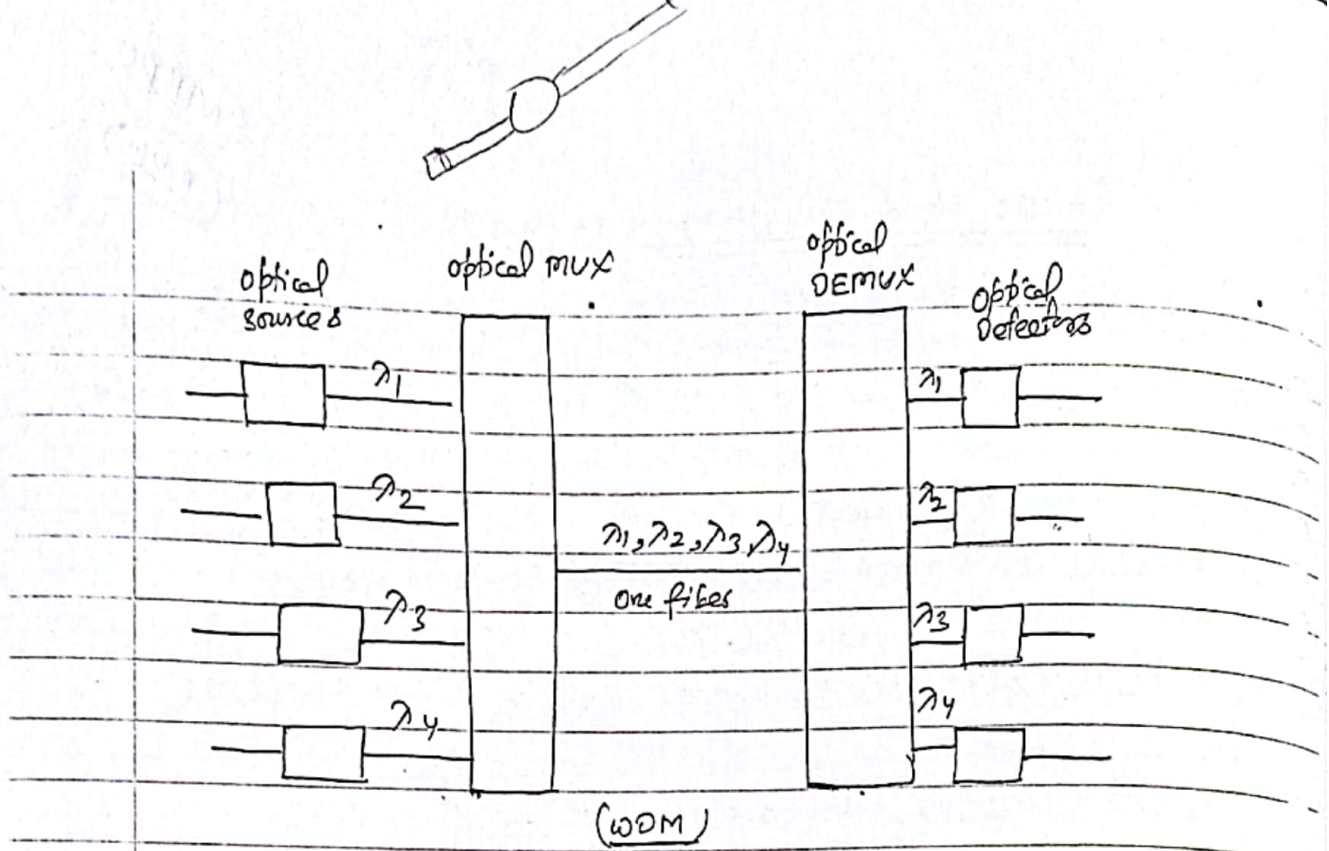 optical
sources
optical MUX
optical
DEMUX
optical
Detectors
λ1
λ2
λ3
λ4
λ1, λ2, λ3, λ4
one fiber
λ1
λ2
λ3
λ4
(WDM)